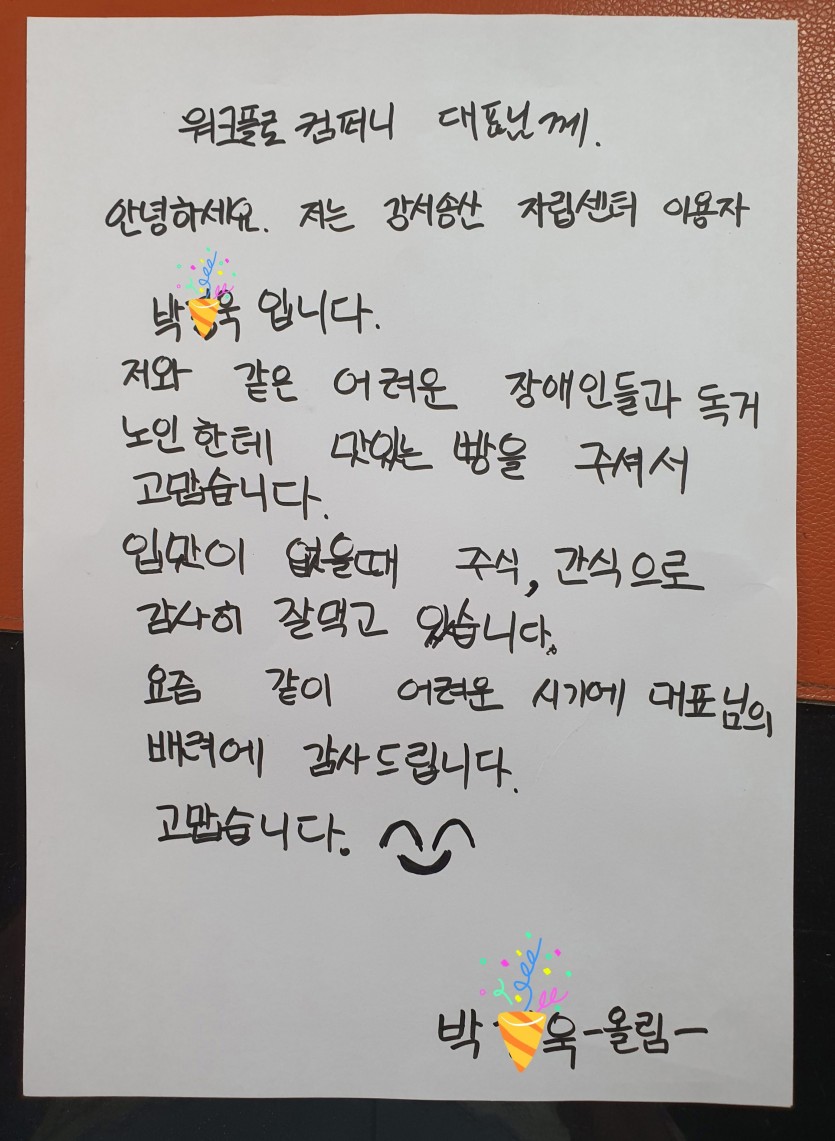 워크플로 컴퍼니 대표님께.
안녕하세요. 저는 강서송산 자립센터 이용자
박 욱 입니다.
저와 같은 어려운 장애인들과 독거
노인한테 맛있는 빵을 주셔서
고맙습니다.
입맛이 없을때 주식, 간식으로
감사히 잘먹고 있습니다.
요즘 같이 어려운 시기에 대표님의
배려에 감사드립니다.
고맙습니다.
박 욱 -올림-